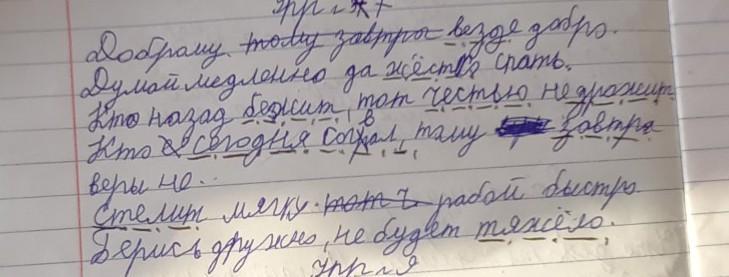 Упр. 7
Доброму тому завтры везде добро.
Думай медленно да жёстко спать.
Кто назад бежит, тот честью не дрожит
Кто сегодня соврал, тому завтра
веры не.
Стелит мягку. тот ч работой быстро
Берись дружно, не будет тяжёло.